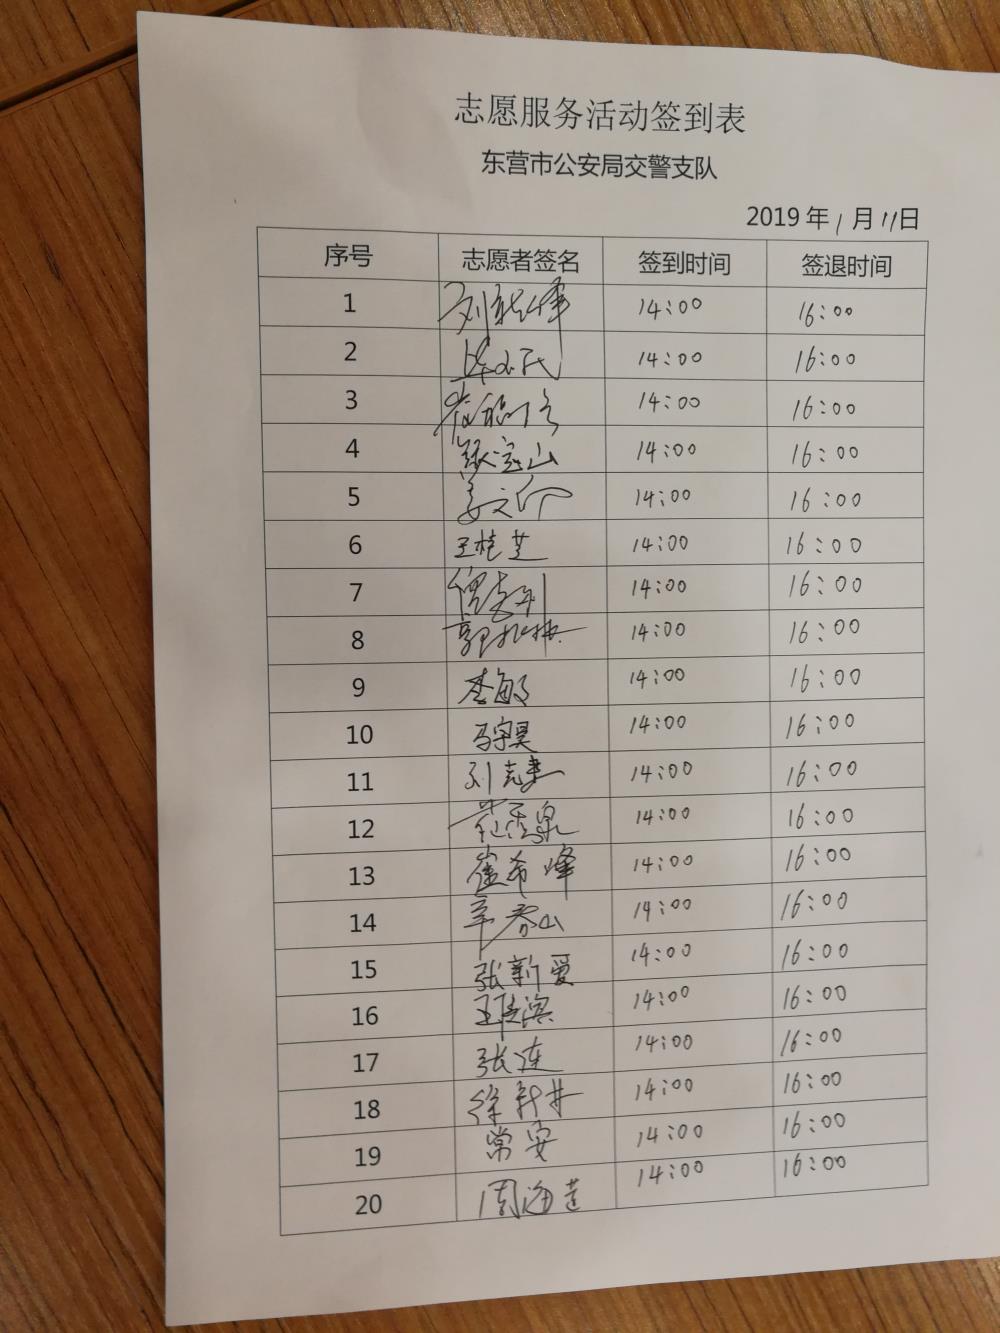 志愿服务活动签到表
东营市公安局交警支队
2019年1月11日
序号 志愿者签名 签到时间 签退时间
1 14:00 16:00
2 14:00 16:00
3 14:00 16:00
4 张宝山 14:00 16:00
5 14:00 16:00
6 王桂芝 14:00 16:00
7 14:00 16:00
8 14:00 16:00
9 李海 14:00 16:00
10 马宇昊 14:00 16:00
11 刘克 14:00 16:00
12 14:00 16:00
13 崔希峰 14:00 16:00
14 辛春山 14:00 16:00
15 张新爱 14:00 16:00
16 14:00 16:00
17 张连 14:00 16:00
18 徐新井 14:00 16:00
19 常安 14:00 16:00
20 周海莲 14:00 16:00